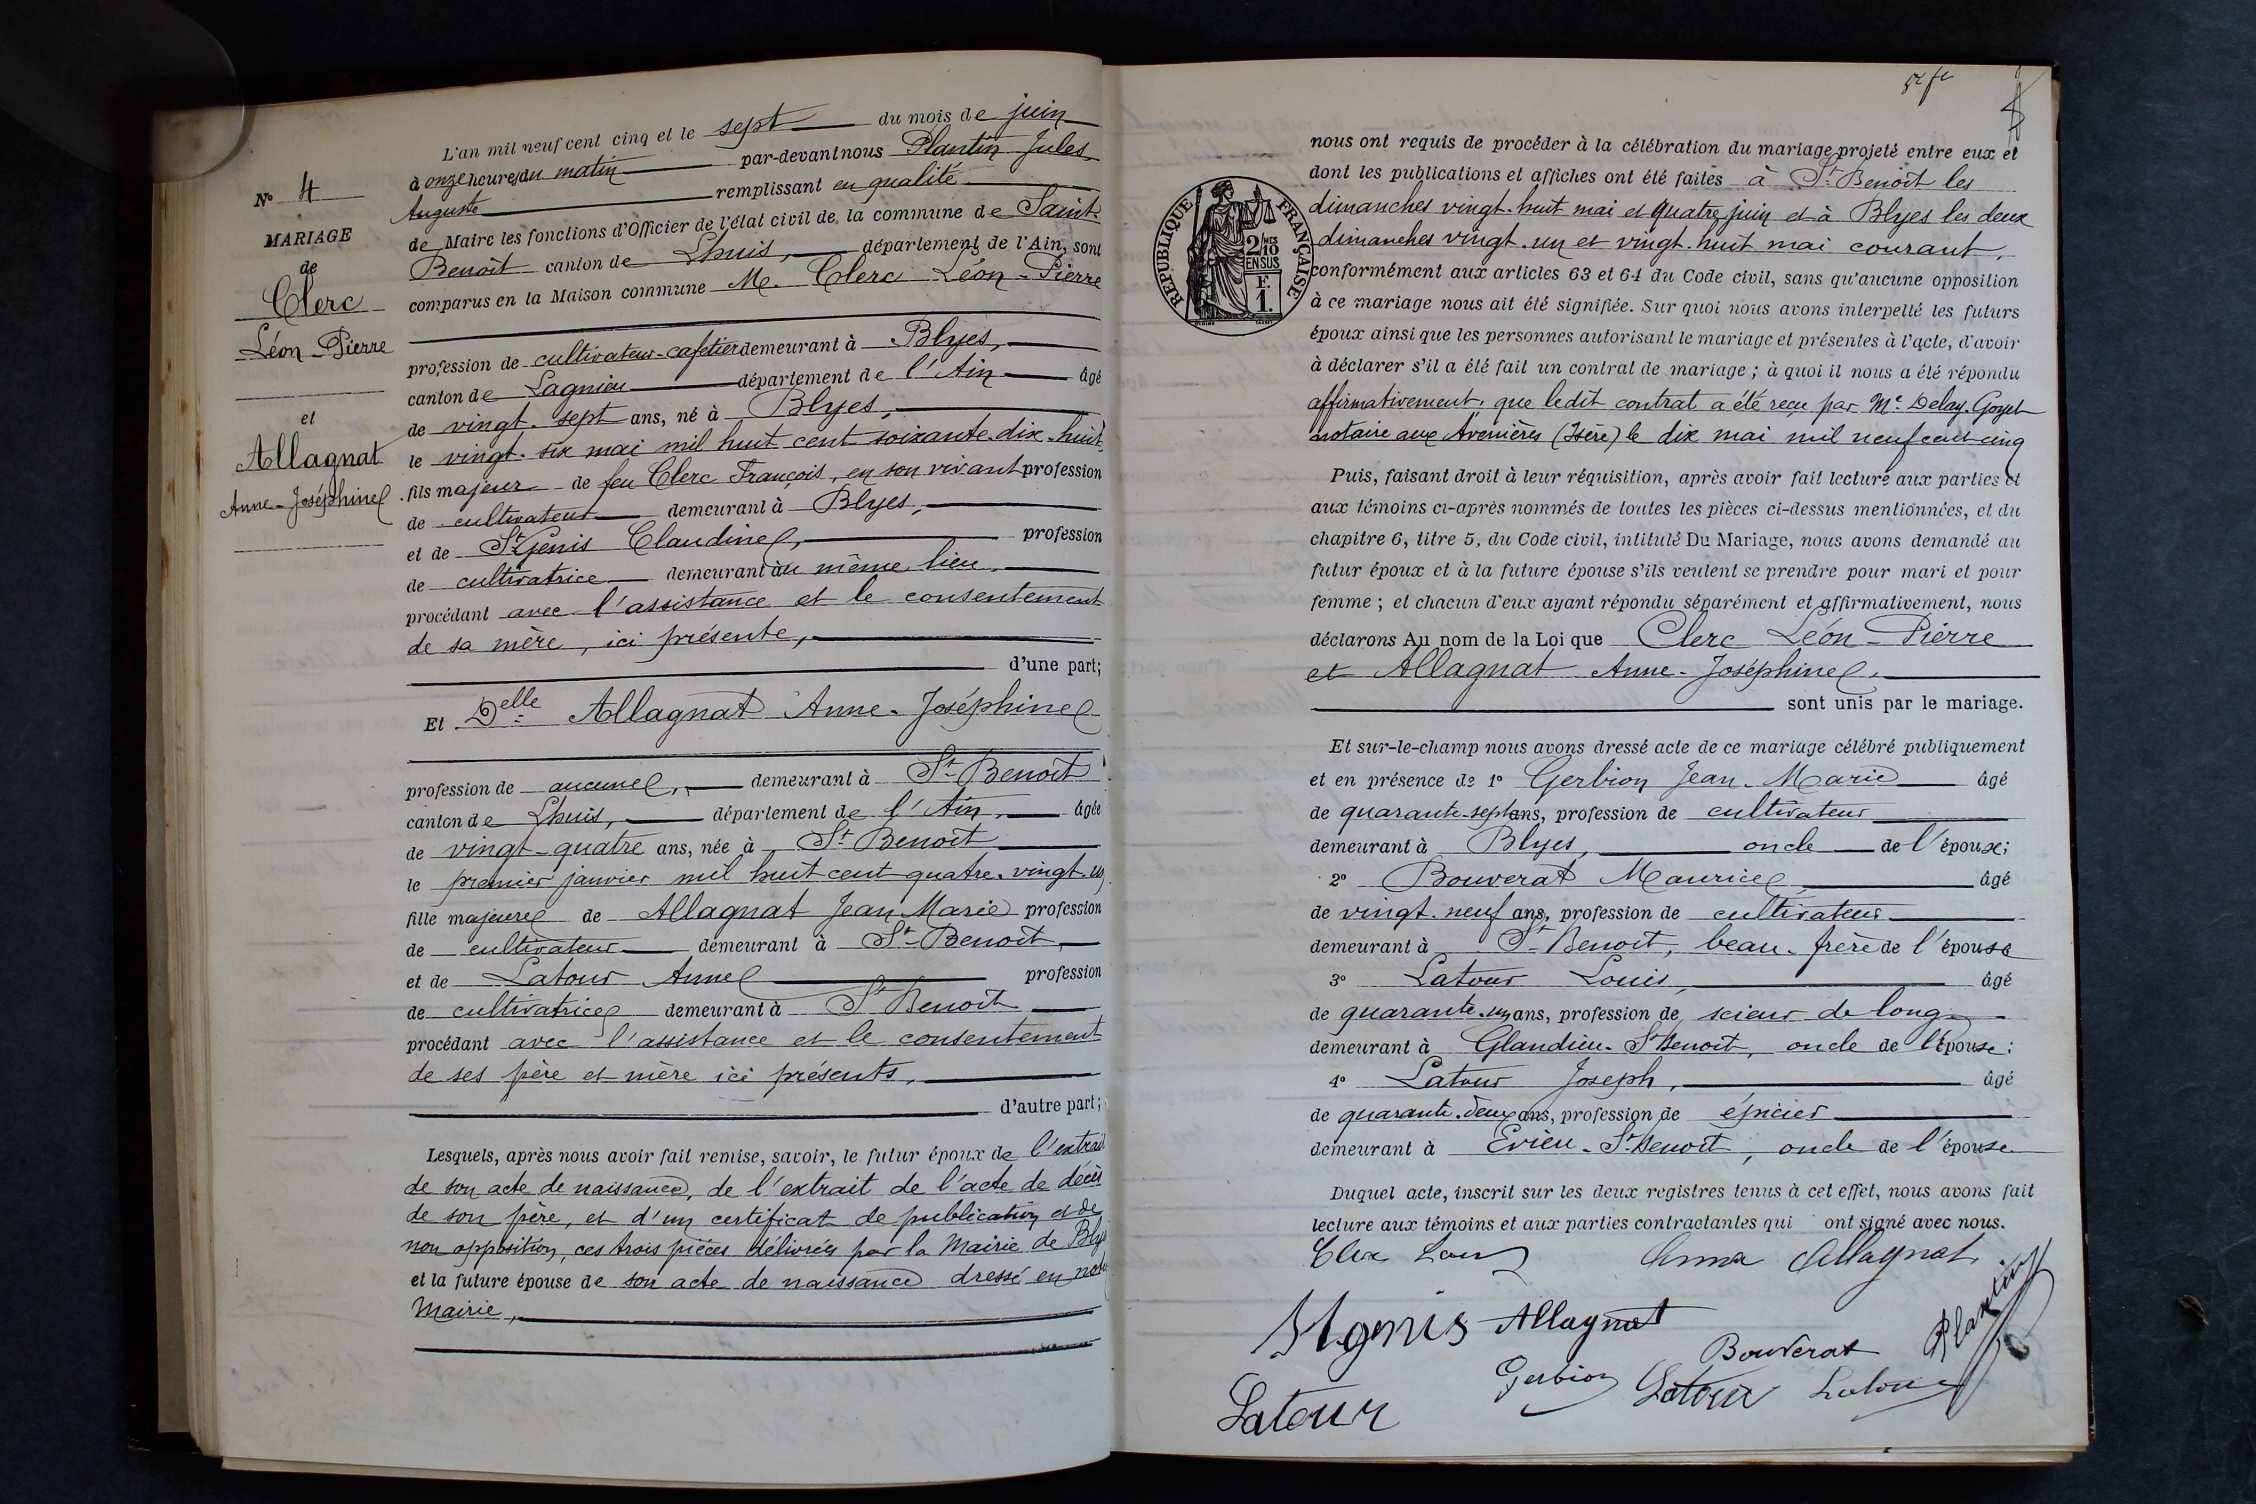 L'an mil neuf cent cinq et le sept du mois de juin
à onze heures du matin par-devant nous Plantin Jules
Auguste remplissant en qualité
de Maire les fonctions d'Officier de l'état civil de la commune de Saint-
Benoît canton de Lhuis, département de l'Ain, sont
comparus en la Maison commune M. Clerc Léon-Pierre
profession de cultivateur-cafetier demeurant à Blyes,
canton de Lagnieu département de l'Ain âgé
de vingt-sept ans, né à Blyes,
le vingt-six mai mil huit cent soixante-dix-huit,
fils majeur de feu Clerc François, en son vivant profession
de cultivateur demeurant à Blyes,
et de St Genis Claudine, profession
de cultivatrice demeurant au même lieu,
procédant avec l'assistance et le consentement
de sa mère, ici présente,
d'une part;
Et Delle Allagnat Anne-Joséphine
profession de aucune, demeurant à St-Benoît
canton de Lhuis, département de l'Ain, âgée
de vingt-quatre ans, née à St Benoît
le premier janvier mil huit cent quatre-vingt-un
fille majeure de Allagnat Jean Marie profession
de cultivateur demeurant à St-Benoît,
et de Latour Anne profession
de cultivatrice demeurant à St Benoît
procédant avec l'assistance et le consentement
de ses père et mère ici présents,
d'autre part;
Lesquels, après nous avoir fait remise, savoir, le futur époux de l'extrait
de son acte de naissance, de l'extrait de l'acte de décès
de son père, et d'un certificat de publication et de
non opposition, ces trois pièces délivrées par la Mairie de Blyes
et la future épouse de son acte de naissance dressé en notre
Mairie,
No 4
MARIAGE
de
Clerc
Léon-Pierre
et
Allagnat
Anne-Joséphine
nous ont requis de procéder à la célébration du mariage projeté entre eux et
dont les publications et affiches ont été faites à St-Benoît les
dimanches vingt-huit mai et quatre juin et à Blyes les deux
dimanches vingt-un et vingt-huit mai courant,
conformément aux articles 63 et 64 du Code civil, sans qu'aucune opposition
à ce mariage nous ait été signifiée. Sur quoi nous avons interpellé les futurs
époux ainsi que les personnes autorisant le mariage et présentes à l'acte, d'avoir
à déclarer s'il a été fait un contrat de mariage; à quoi il nous a été répondu
affirmativement, que ledit contrat a été reçu par Me Delay-Goyet
notaire aux Avenières (Isère) le dix mai mil neuf cent cinq
Puis, faisant droit à leur réquisition, après avoir fait lecture aux parties et
aux témoins ci-après nommés de toutes les pièces ci-dessus mentionnées, et du
chapitre 6, titre 5, du Code civil, intitulé Du Mariage, nous avons demandé au
futur époux et à la future épouse s'ils veulent se prendre pour mari et pour
femme; et chacun d'eux ayant répondu séparément et affirmativement, nous
déclarons Au nom de la Loi que Clerc Léon-Pierre
et Allagnat Anne-Joséphine,
sont unis par le mariage.
Et sur-le-champ nous avons dressé acte de ce mariage célébré publiquement
et en présence de 1° Gerbion Jean-Marie âgé
de quarante-sept ans, profession de cultivateur
demeurant à Blyes, oncle de l'époux;
2° Bouverat Maurice, âgé
de vingt-neuf ans, profession de cultivateur
demeurant à St Benoît, beau-frère de l'épouse
3° Latour Louis, âgé
de quarante-un ans, profession de scieur de long
demeurant à Glandieu-St Benoît, oncle de l'épouse;
4° Latour Joseph, âgé
de quarante-deux ans, profession de épicier
demeurant à Evieu-St-Benoît, oncle de l'épouse
Duquel acte, inscrit sur les deux registres tenus à cet effet, nous avons fait
lecture aux témoins et aux parties contractantes qui ont signé avec nous.
Clerc Anna Allagnat
St genis Allagnat Plantin
Bouverat
Gerbion Latour Latour
Latour
RÉPUBLIQUE FRANÇAISE
2/10 MES
EN SUS
F.
1.